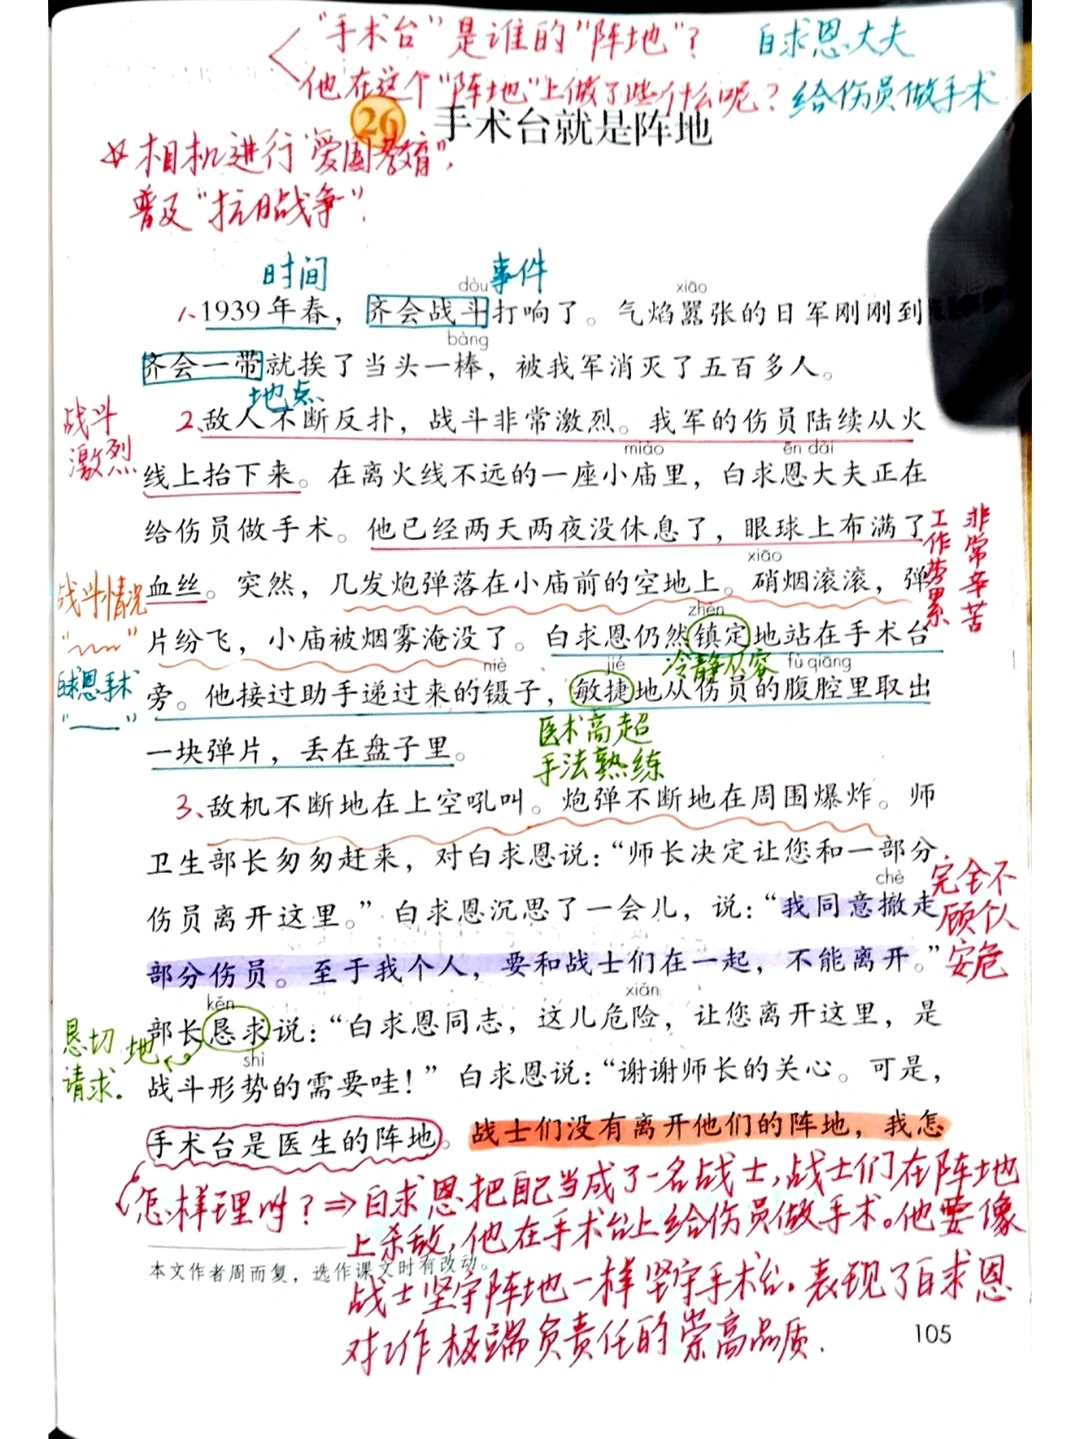 "手术台"是谁的"阵地"？ 白求恩大夫
他在这个"阵地"上做了些什么呢？ 给伤员做手术
26 手术台就是阵地
相机进行"爱国教育"，
普及"抗日战争"。
时间 事件
dòu xiāo
1、1939年春，齐会战斗打响了。气焰嚣张的日军刚刚到
bàng
齐会一带就挨了当头一棒，被我军消灭了五百多人。
地点
战斗
激烈
2、敌人不断反扑，战斗非常激烈。我军的伤员陆续从火
miào ēn dài
线上抬下来。在离火线不远的一座小庙里，白求恩大夫正在
给伤员做手术。他已经两天两夜没休息了，眼球上布满了
工作劳累
非常辛苦
xiāo
血丝。突然，几发炮弹落在小庙前的空地上。硝烟滚滚，弹
战斗情况
zhèn
片纷飞，小庙被烟雾淹没了。白求恩仍然镇定地站在手术台
冷静从容
白求恩手术
niè jié fù qiāng
旁。他接过助手递过来的镊子，敏捷地从伤员的腹腔里取出
医术高超
手法熟练
一块弹片，丢在盘子里。
3、敌机不断地在上空吼叫。炮弹不断地在周围爆炸。师
卫生部长匆匆赶来，对白求恩说：“师长决定让您和一部分
chè
伤员离开这里。”白求恩沉思了一会儿，说：“我同意撤走
完全不
顾个人
安危
部分伤员。至于我个人，要和战士们在一起，不能离开。”
kěn xiǎn
部长恳求说：“白求恩同志，这儿危险，让您离开这里，是
恳切地
请求.
shì
战斗形势的需要哇！”白求恩说：“谢谢师长的关心。可是，
手术台是医生的阵地。战士们没有离开他们的阵地，我怎
怎样理解？⇒白求恩把自己当成了一名战士，战士们在阵地
上杀敌，他在手术台上给伤员做手术。他要像
本文作者周而复，选作课文时有改动。
战士坚守阵地一样坚守手术台。表现了白求恩
对工作极端负责任的崇高品质.
105